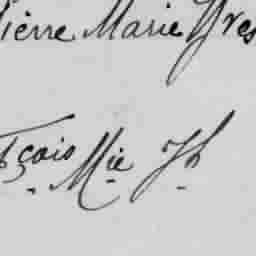 Pierre Marie Yves
fçois Mie Jh